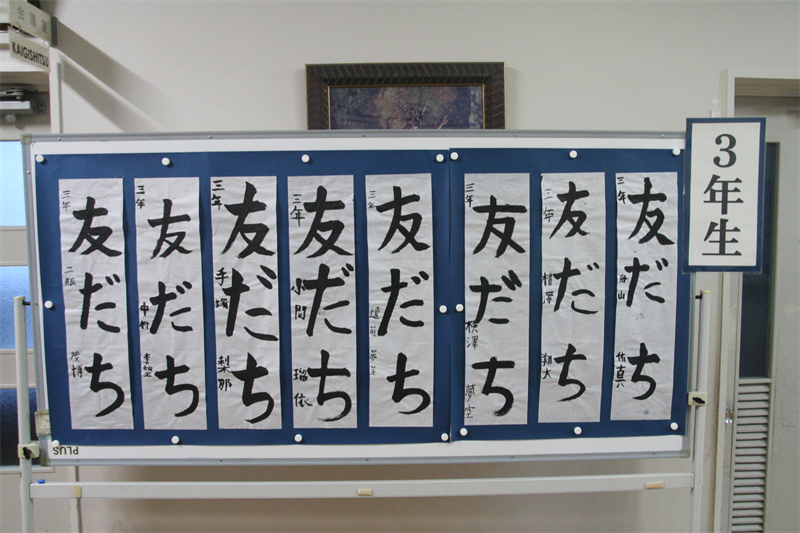 会議室
KAIGISHITSU
3年生
友だち
三年 舟山
友だち
三年 翔大
友だち
三年 横澤 夢空
友だち
三年
友だち
三年 小関 瑠依
友だち
三年 手塚 梨那
友だち
三年 中村
友だち
三年 二瓶 茂博
PLUS